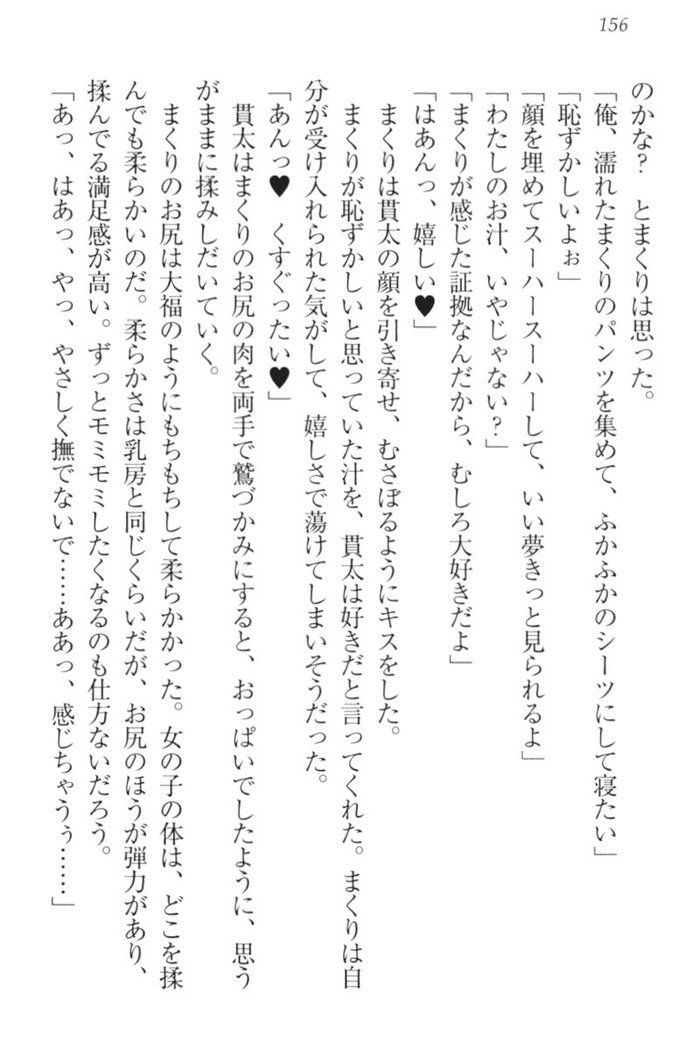 156
のかな？　とまくりは思った。
「俺、濡れたまくりのパンツを集めて、ふかふかのシーツにして寝たい」
「恥ずかしいよぉ」
「顔を埋めてスーハースーハーして、いい夢きっと見られるよ」
「わたしのお汁、いやじゃない？」
「まくりが感じた証拠なんだから、むしろ大好きだよ」
「はあんっ、嬉しい♥」
まくりは貫太の顔を引き寄せ、むさぼるようにキスをした。
まくりが恥ずかしいと思っていた汁を、貫太は好きだと言ってくれた。まくりは自
分が受け入れられた気がして、嬉しさで蕩けてしまいそうだった。
「あんっ♥　くすぐったい♥」
貫太はまくりのお尻の肉を両手で鷲づかみにすると、おっぱいでしたように、思う
がままに揉みしだいていく。
まくりのお尻は大福のようにもちもちして柔らかかった。女の子の体は、どこを揉
んでも柔らかいのだ。柔らかさは乳房と同じくらいだが、お尻のほうが弾力があり、
揉んでる満足感が高い。ずっとモミモミしたくなるのも仕方ないだろう。
「あっ、はあっ、やっ、やさしく撫でないで……ああっ、感じちゃうぅ……」